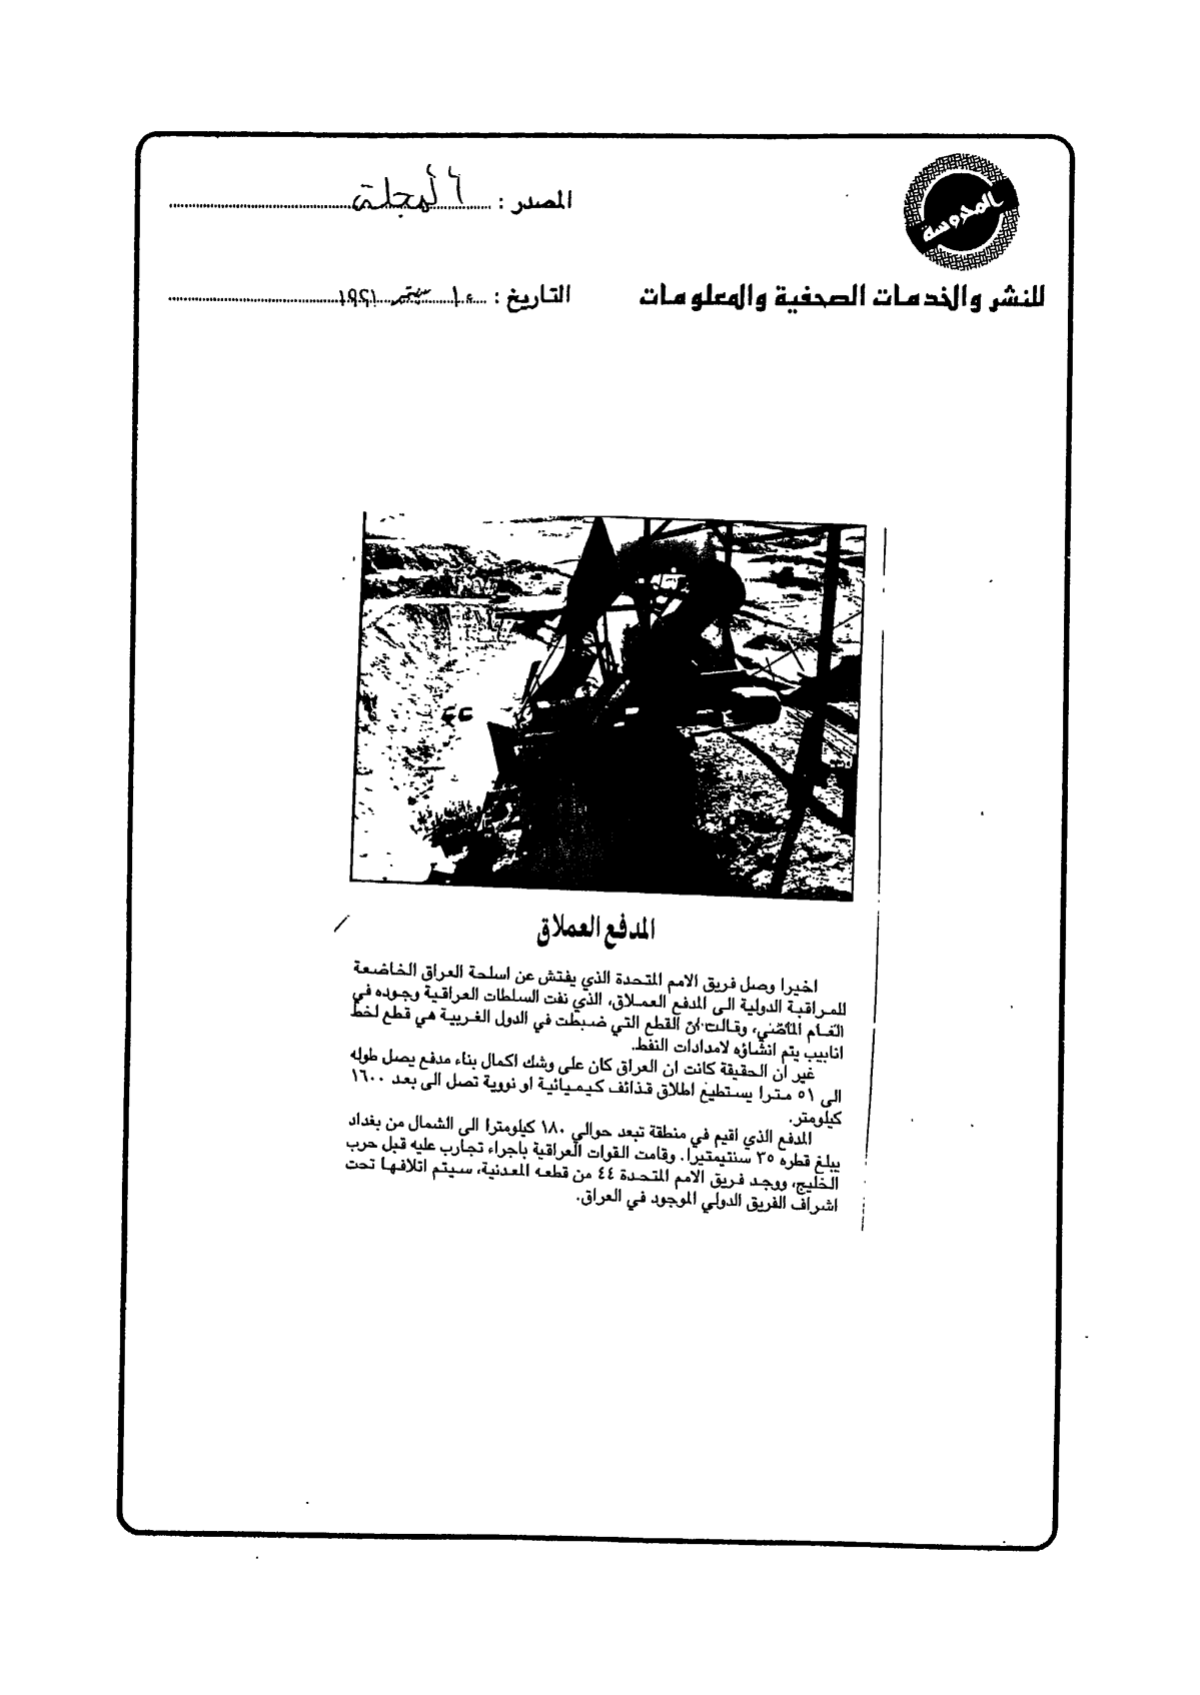 المحروسة
للنشر والخدمات الصحفية والمعلومات
المصدر : المجلة
التاريخ : ١٠ سبتمبر ١٩٩١
المدفع العملاق
اخيرا وصل فريق الامم المتحدة الذي يفتش عن اسلحة العراق الخاضعة
للمراقبة الدولية الى المدفع العملاق، الذي نفت السلطات العراقية وجوده في
العام الماضي، وقالت ان القطع التي ضبطت في الدول الغربية هي قطع لخط
انابيب يتم انشاؤه لامدادات النفط.
غير ان الحقيقة كانت ان العراق كان على وشك اكمال بناء مدفع يصل طوله
الى ٥١ مترا يستطيع اطلاق قذائف كيميائية او نووية تصل الى بعد ١٦٠٠
كيلومتر.
المدفع الذي اقيم في منطقة تبعد حوالي ١٨٠ كيلومترا الى الشمال من بغداد
يبلغ قطره ٣٥ سنتيمتيرا. وقامت القوات العراقية باجراء تجارب عليه قبل حرب
الخليج، ووجد فريق الامم المتحدة ٤٤ من قطعه المعدنية، سيتم اتلافها تحت
اشراف الفريق الدولي الموجود في العراق.